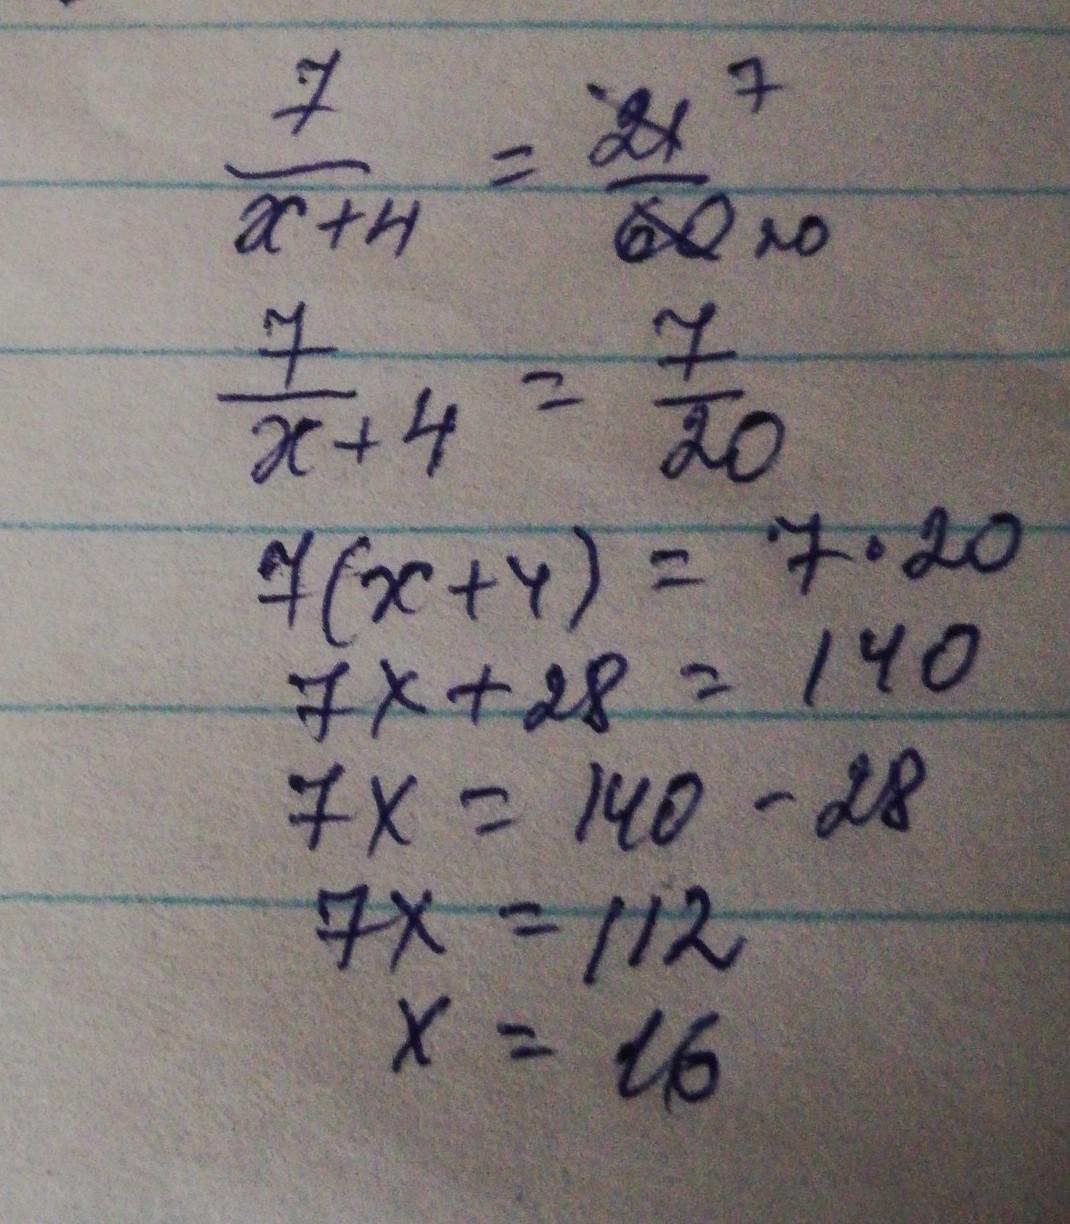 7/(x+4) = 21/60 7 20
7/(x+4) = 7/20
7(x+4) = 7·20
7x+28 = 140
7x = 140 - 28
7x = 112
x = 16